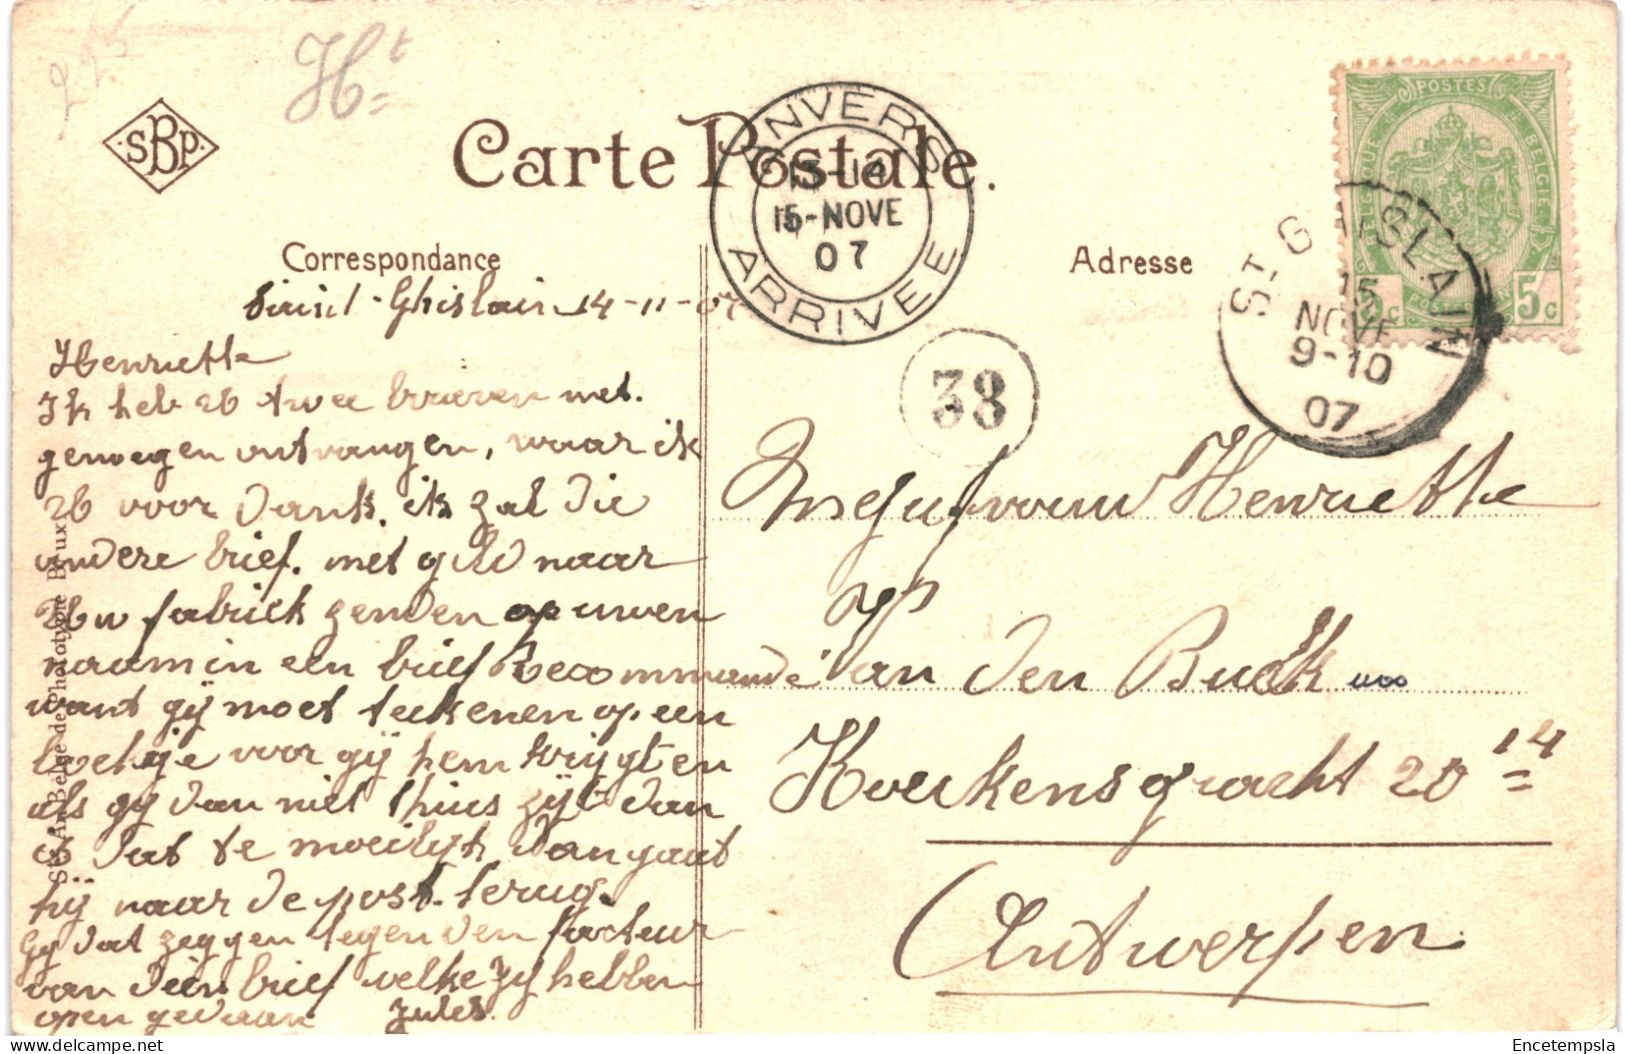 225
Ht
SBP
Carte Postale.
ANVERS
13-14
15-NOVE
07
ARRIVEE
POSTES
BELGIQUE
BELGIE
5c
5c
POSTERIJEN
ST. GHISLAIN
15
NOVE
9-10
07
38
Correspondance
Adresse
Saint-Ghislain 14-11-07
Henriette
Ik heb U twee brieven met.
genoegen ontvangen, waar ik
U voor dank. ik zal die
andere brief. met geld naar
Uw fabriek zenden op uwen
naam in een brief Recommandé
want gij moet teekenen op een
boekje voor gij hem krijgt en
als gij dan niet thuis zijt dan
is dat te moeilijk dan gaat
hij naar de post. terug.
Gij dat zeggen tegen den facteur
van dien brief welke zij hebben
open gedaan Jules.
Mejufvrouw Henriette
Van den Buck
Koeckensgracht 20 14
Antwerpen
Sté An. Belge de Phototypie Brux.
Encetempsla
delcampe.net